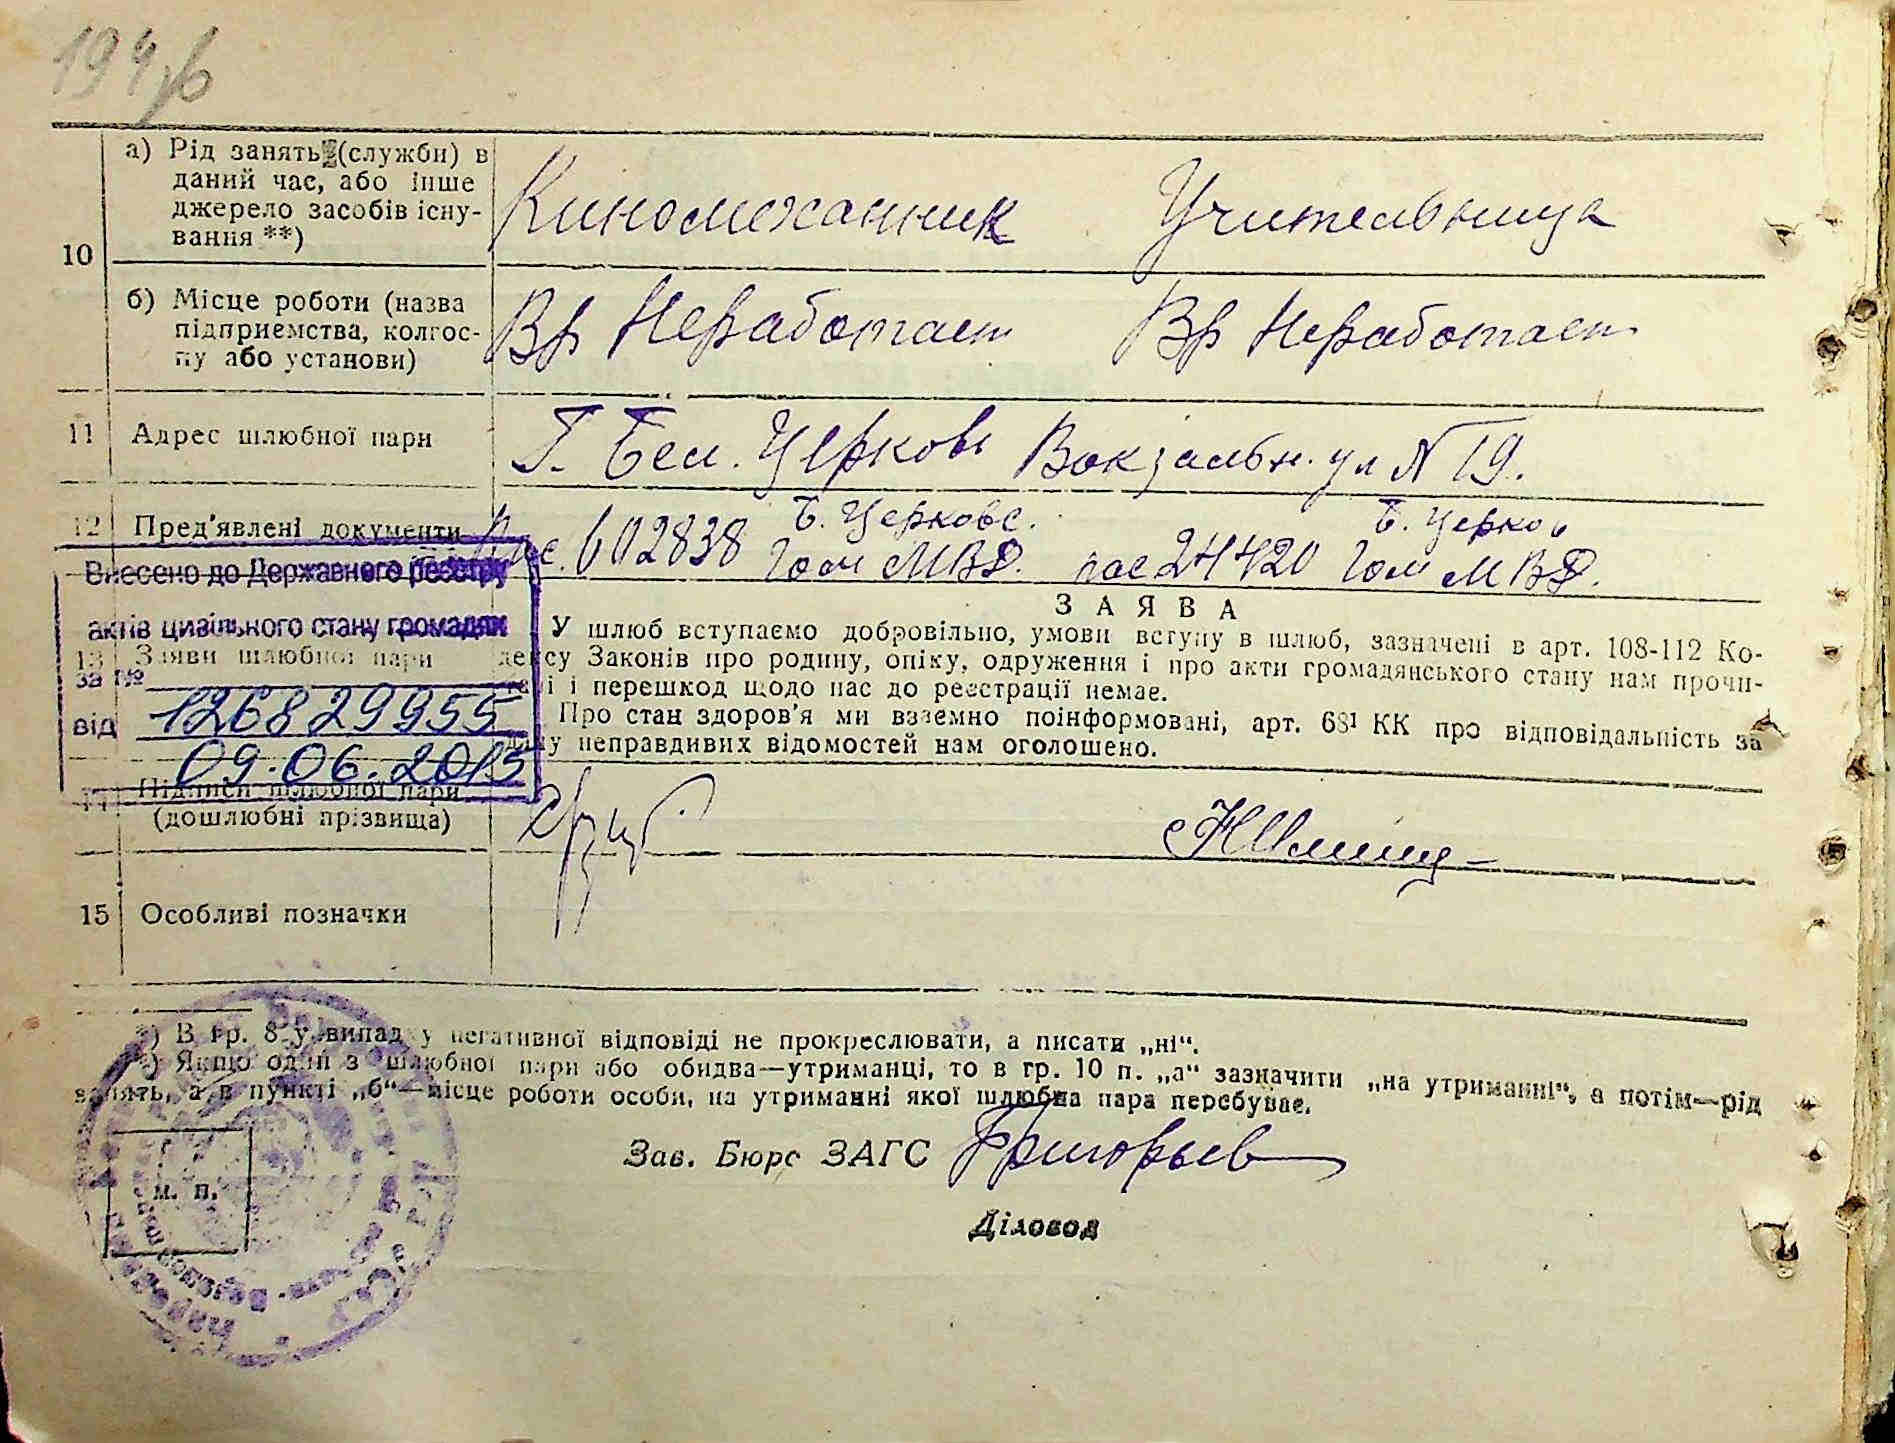 194
10 а) Рід занять (служби) в
даний час, або інше
джерело засобів існу-
вання **)
Киномеханник Учительница
б) Місце роботи (назва
підприємства, колгос-
пу або установи)
Вр Неработает Вр Неработает
11 Адрес шлюбної пари
Г. Бел. Церковь Вокзальн. ул N 19.
12 Пред'явлені документи
Б. Церковс. Б. Церков
Пас. 602838 Гом МВД. пас 24420 Гом МВД.
Внесено до Державного реєстру
актів цивільного стану громадян
за №
126829955
від
09.06.2015
13 Заяви шлюбної пари
ЗАЯВА
У шлюб вступаємо добровільно, умови вступу в шлюб, зазначені в арт. 108-112 Ко-
дексу Законів про родину, опіку, одруження і про акти громадянського стану нам прочи-
тані і перешкод щодо нас до реєстрації немає.
Про стан здоров'я ми взаємно поінформовані, арт. 68¹ КК про відповідальність за
дачу неправдивих відомостей нам оголошено.
14 Підписи шлюбної пари
(дошлюбні прізвища)
15 Особливі позначки
*) В гр. 8 у випадку негативної відповіді не прокреслювати, а писати „ні“.
**) Якщо один з шлюбної пари або обидва—утриманці, то в гр. 10 п. „а“ зазначити „на утриманні“, а потім—рід
занять, а в пункті „б“—місце роботи особи, на утриманні якої шлюбна пара перебуває.
Зав. Бюро ЗАГС Григорьев
м. п.
Діловод